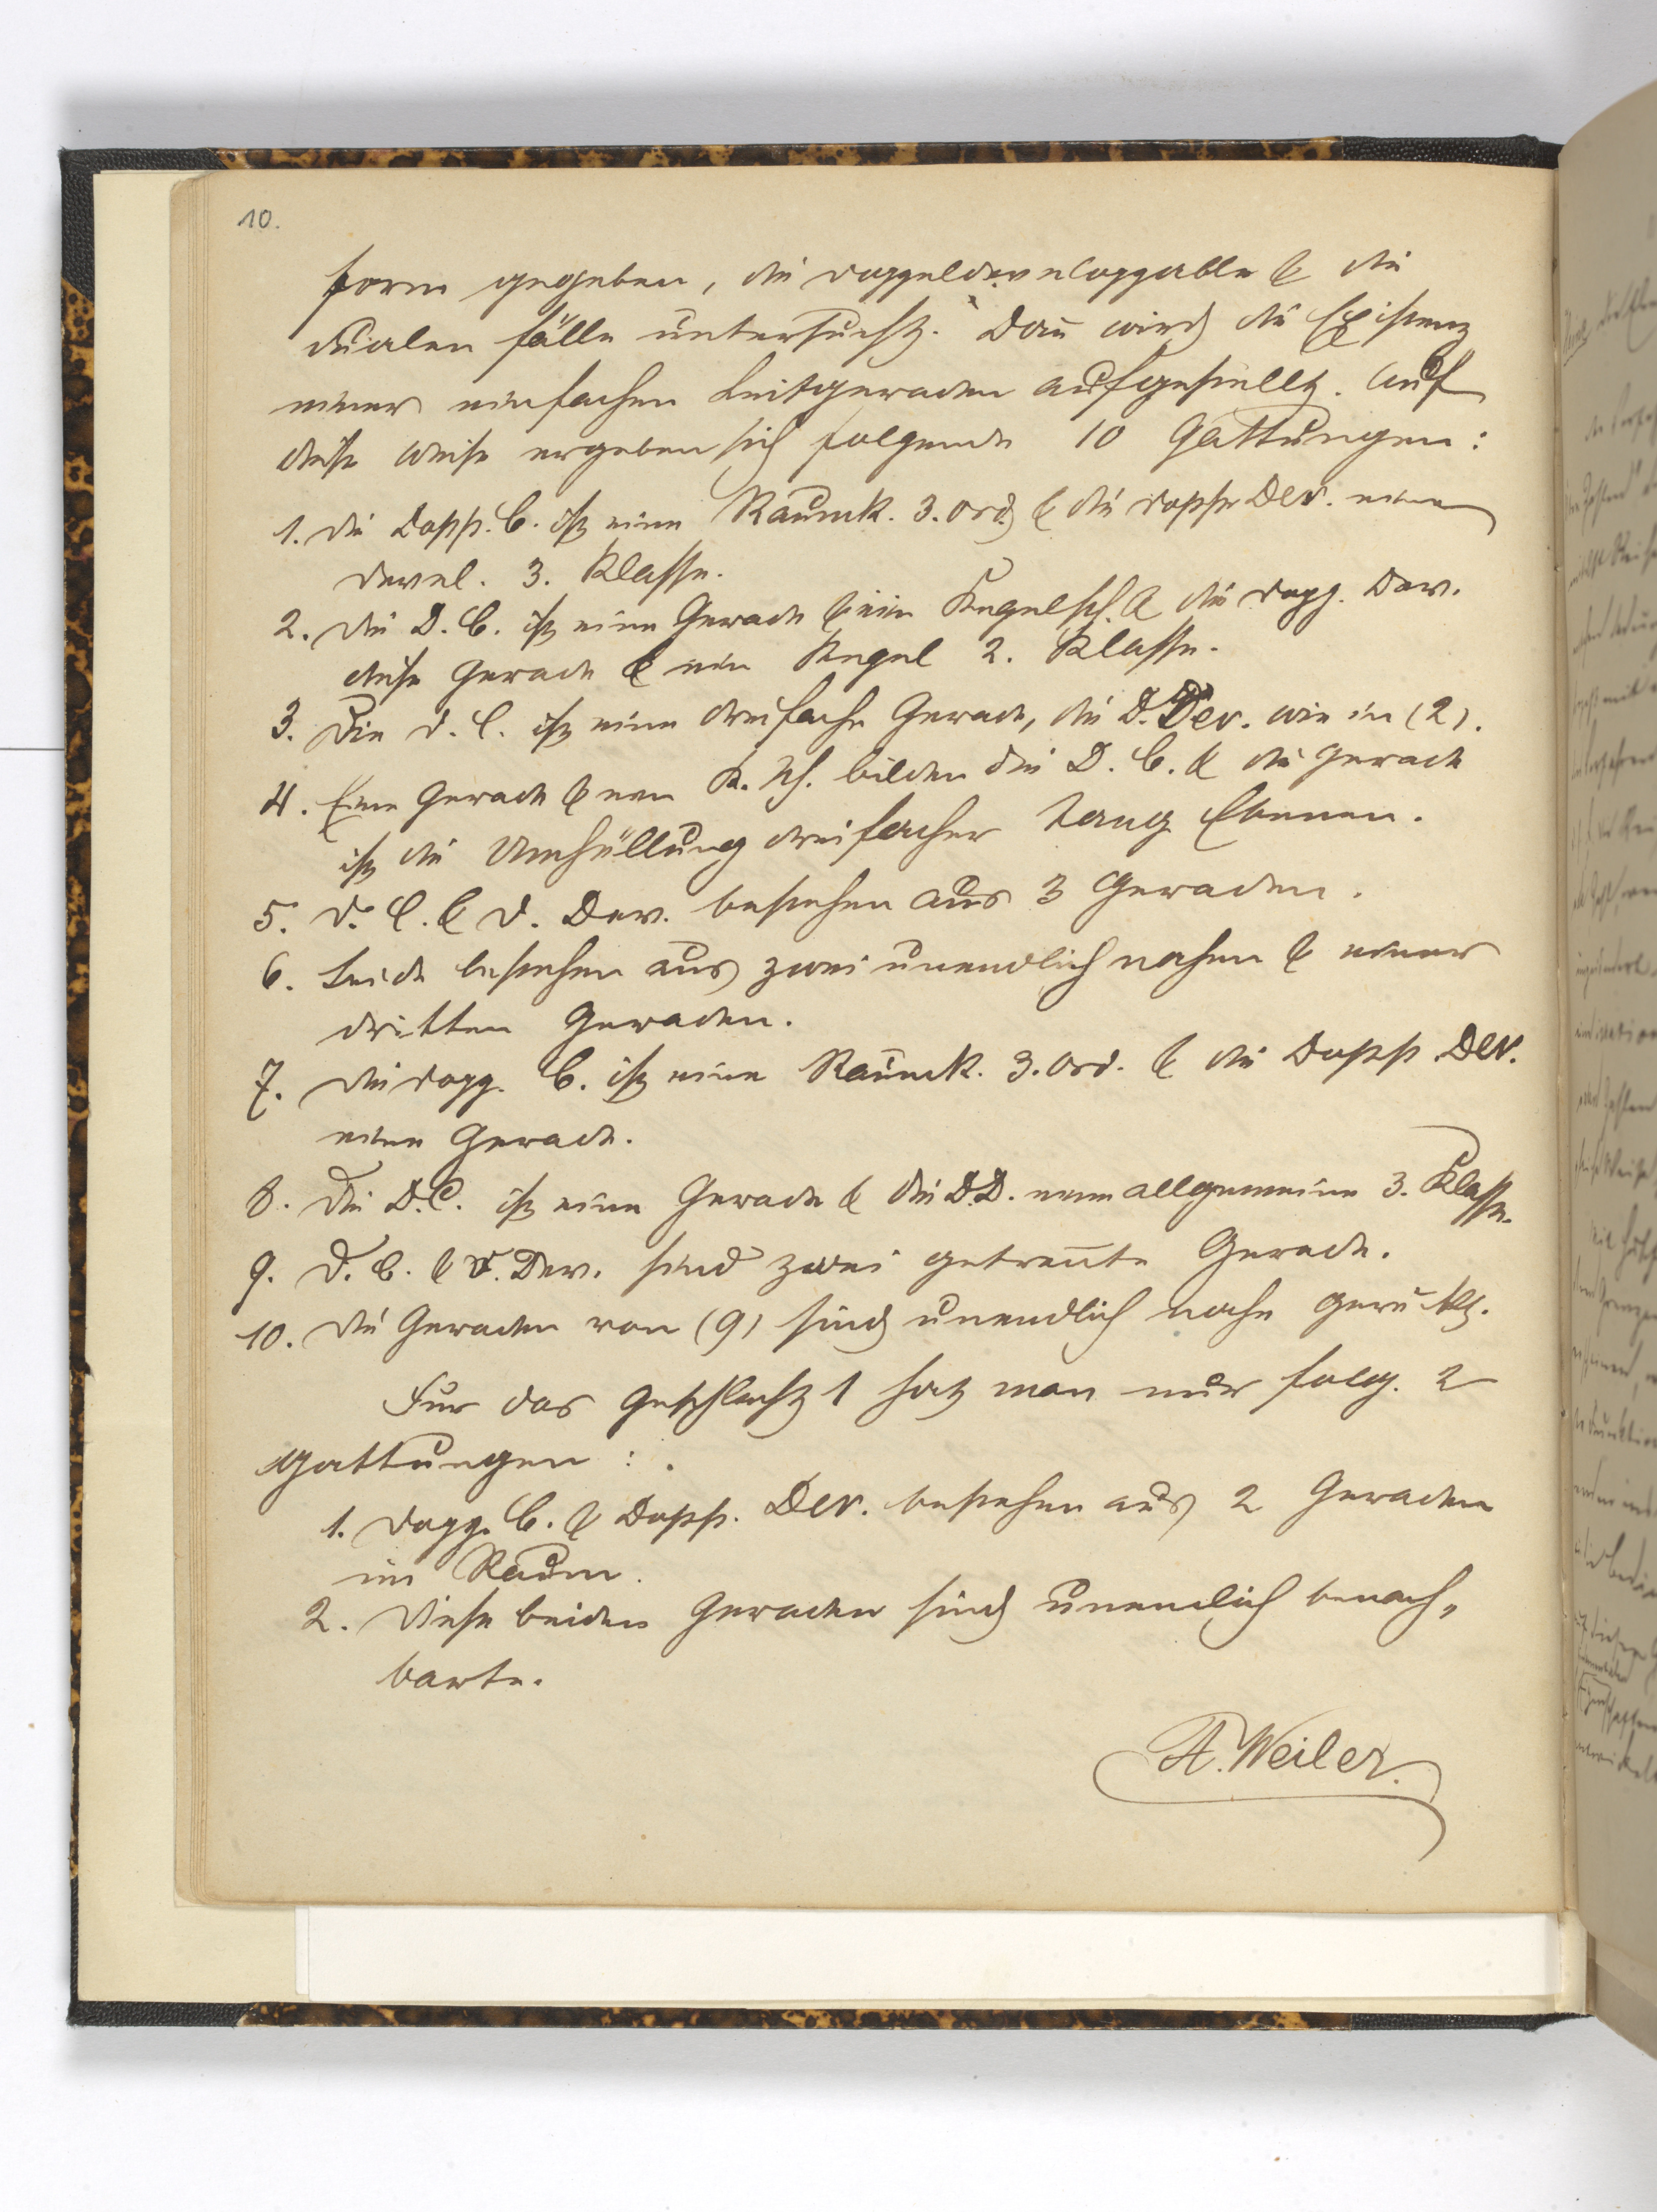 10.
form gegeben, die doppeldeveloppable & die
dualen Fälle untersucht. Dann wird die Existenz
einer einfachen Leitgeraden aufgestellt. Auf
diese Weise ergeben sich folgende 10 Gattungen:
1. Die Dopp. C. ist eine Raumk. 3. Ord. & die dopp. Dev. eine
devel. 3. Klasse.
2. Die D. C. ist eine Gerade & ein Kegelsch. & die dopp. Dev.
diese Gerade & ein Kegel 2. Klasse.
3. Die d. C. ist eine dreifache Gerade, die D. Dev. wie in (2).
4. Eine Gerade & ein K. Sch. bilden die D. C. & die Gerade
ist die Umhüllung dreifacher Tang. Ebenen.
5. D. C. & D. Dev. bestehen aus 3 Geraden.
6. Beide bestehen aus zwei unendlich nahen & einer
dritten Geraden.
7. Die dopp. C. ist eine Raumk. 3. Ord. & die Dopp. Dev.
eine Gerade.
8. Die D. C. ist eine Gerade & die D.D. eine allgemeine 3. Klasse.
9. D. C. & D. Dev. sind zwei getrennte Gerade.
10. Die Geraden von (9) sind unendlich nahe gerückt.
Für das Geschlecht 1 hat man nur folg. 2
Gattungen:
1. Dopp. C. & Dopp. Dev. bestehen aus 2 Geraden
im Raum.
2. Diese beiden Geraden sind unendlich benach„
barte.
A. Weiler.